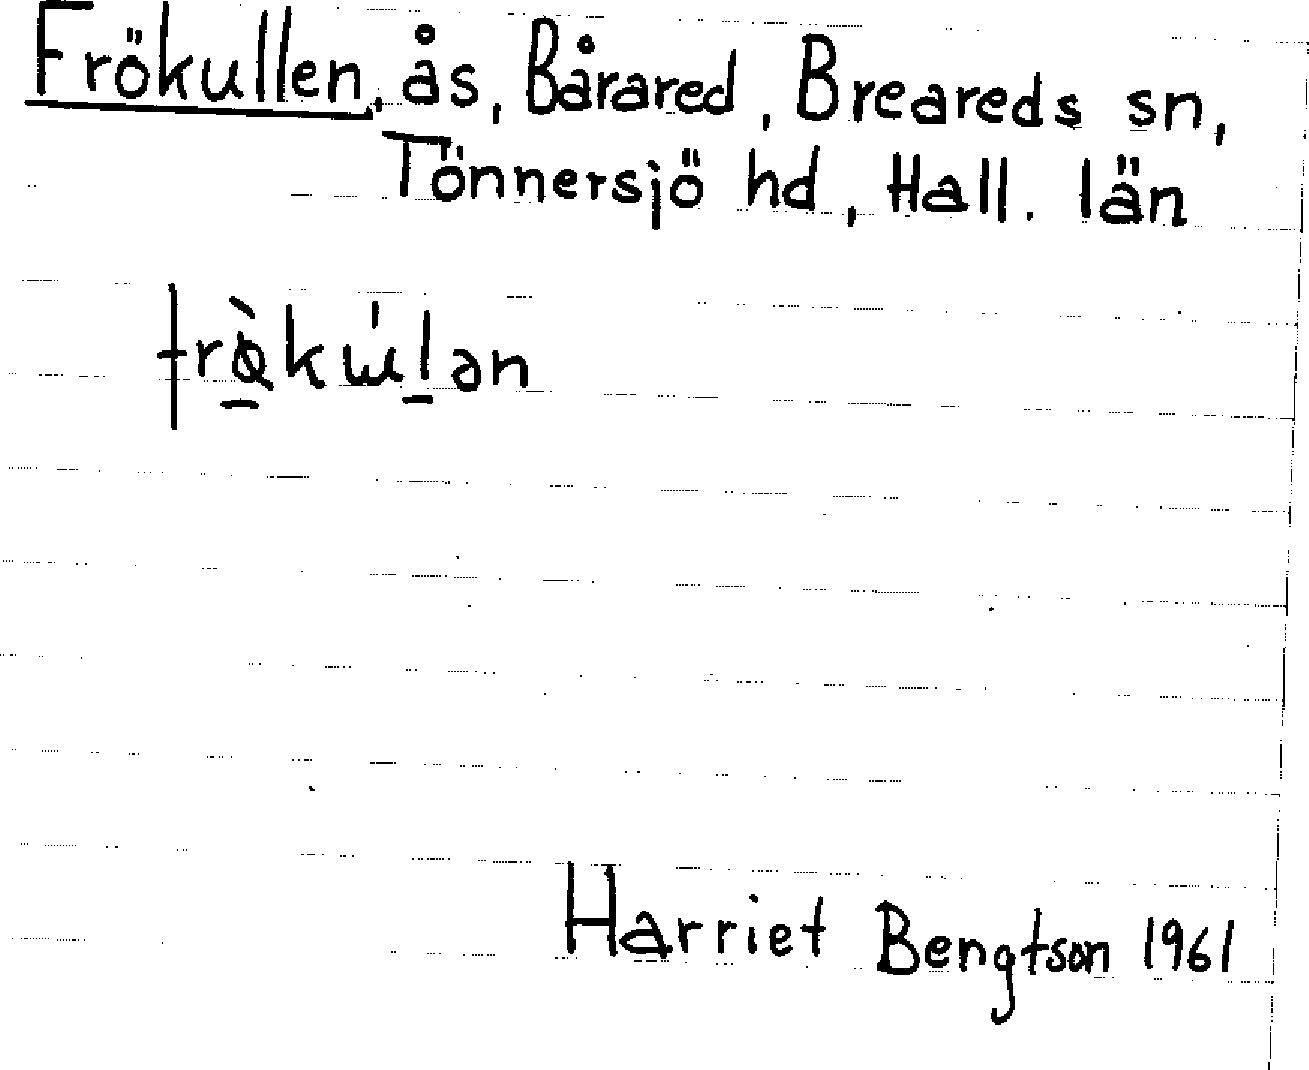 Frökullen, ås, Bårared, Breareds sn,
Tönnersjö hd, Hall. län
Harriet Bengtson 1961